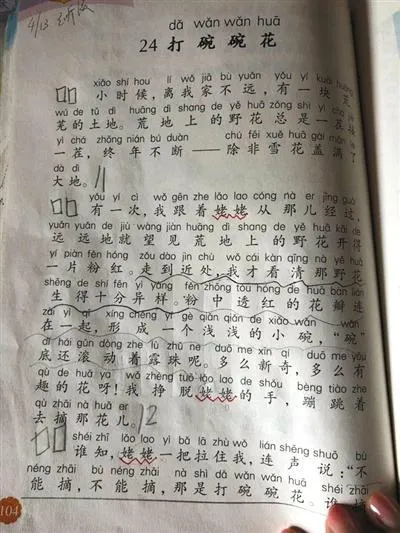 4/13
dǎ wǎn wǎn huā
24 打碗碗花
xiǎo shí hou lí wǒ jiā bù yuǎn yǒu yí kuài huāng
小时候，离我家不远，有一块荒
wú de tǔ dì huāng dì shang de yě huā zǒng shì yì chá
芜的土地。荒地上的野花总是一茬接
yì chá zhōng nián bú duàn chú fēi xuě huā gài mǎn le
一茬，终年不断——除非雪花盖满了
dà dì
大地。11
yǒu yí cì wǒ gēn zhe lǎo lao cóng nà er jīng guò
有一次，我跟着姥姥从那儿经过，
yuǎn yuǎn de jiù wàng jiàn huāng dì shang de yě huā kāi de
远远地就望见荒地上的野花开得
yí piàn fěn hóng zǒu dào jìn chù wǒ cái kàn qīng nà yě huā
一片粉红。走到近处，我才看清那野花
shēng de shí fēn yì yàng fěn zhōng tòu hóng de huā bàn lián
生得十分异样。粉中透红的花瓣连
zài yì qǐ xíng chéng yí gè qiǎn qiǎn de xiǎo wǎn wǎn
在一起，形成一个浅浅的小碗，“碗”
dǐ hái gǔn dòng zhe lù zhū ne duō me xīn qí duō me yǒu
底还滚动着露珠呢。多么新奇，多么有
qù de huā ya wǒ zhèng tuō lǎo lao de shǒu bèng tiào zhe
趣的花呀！我挣脱姥姥的手，蹦跳着
qù zhāi nà huā er
去摘那花儿。12
shéi zhī lǎo lao yì bǎ lā zhù wǒ lián shēng shuō bù
谁知，姥姥一把拉住我，连声说：“不
néng zhāi bù néng zhāi nà shì dǎ wǎn wǎn huā shéi zhāi
能摘，不能摘，那是打碗碗花。谁摘
104